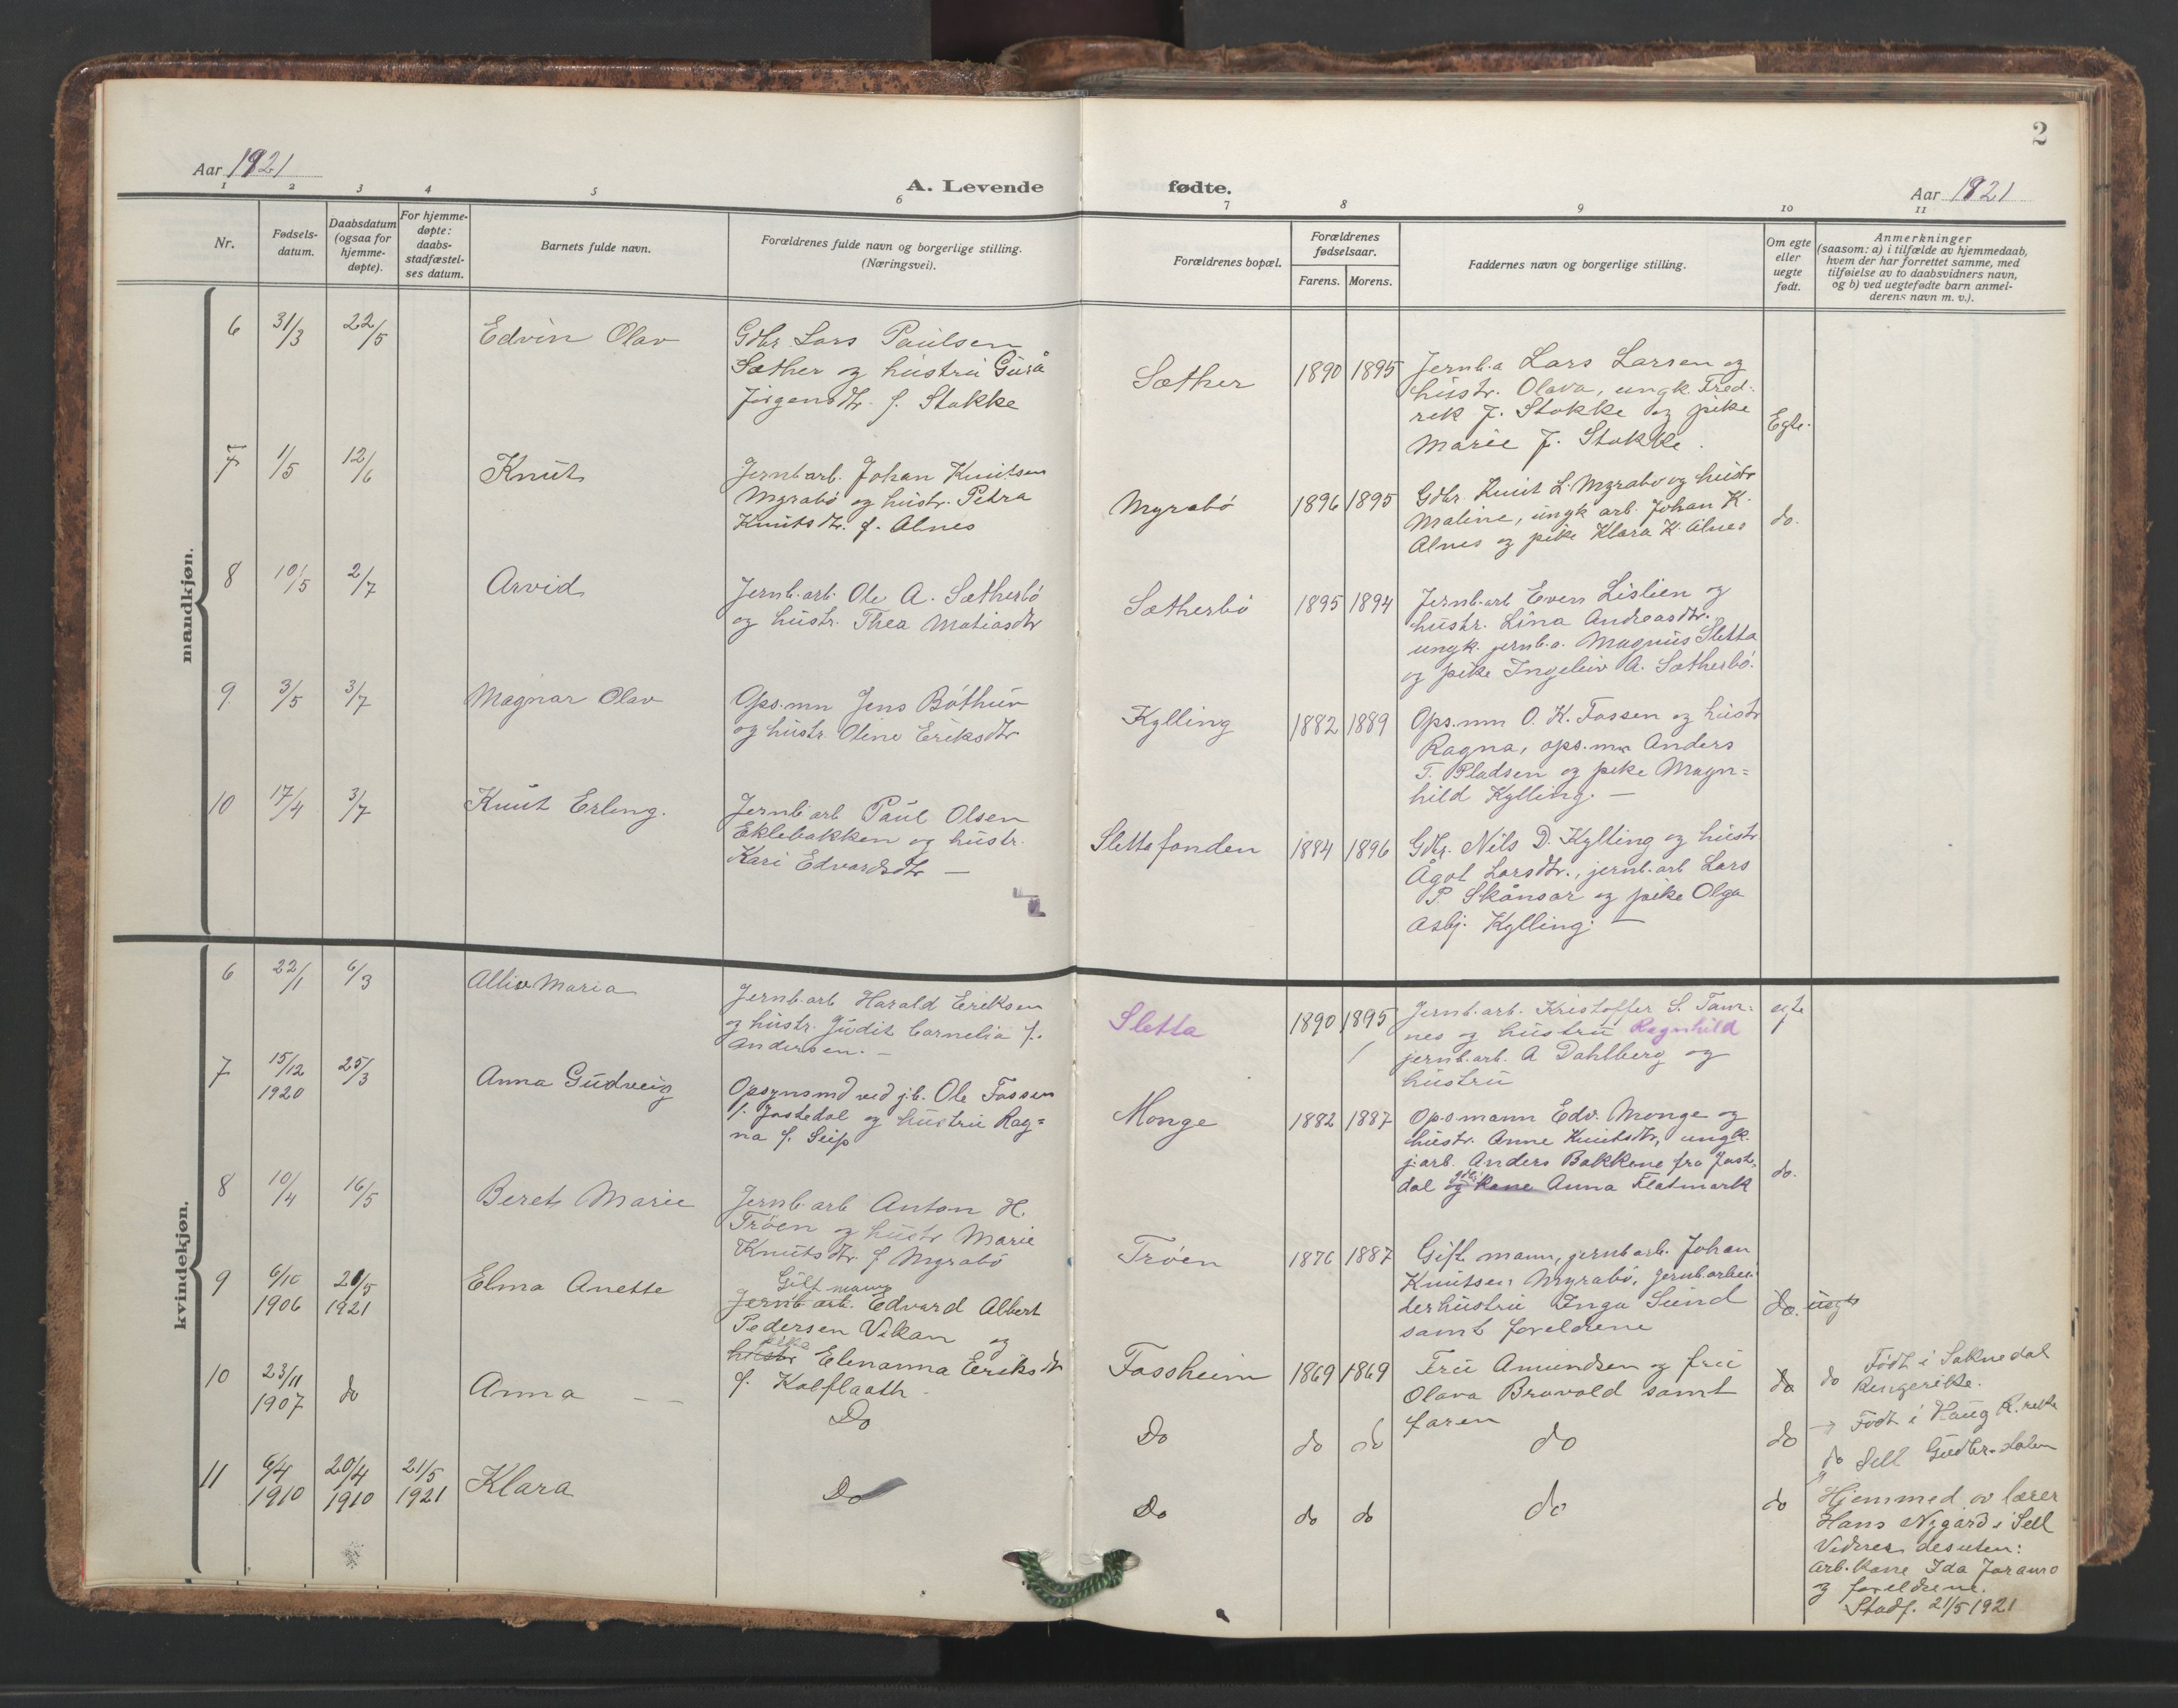 2
Aar 1921
A. Levende fødte.
Aar 1921
1 2 3 4 5 6 7 8 9 10 11
Nr.
Fødsels-
datum.
Daabsdatum
(ogsaa for
hjemme-
døpte).
For hjemme-
døpte:
daabs-
stadfæstel-
ses datum.
Barnets fulde navn.
Forældrenes fulde navn og borgerlige stilling.
(Næringsvei).
Forældrenes bopæl.
Forældrenes
fødselsaar.
Farens. Morens.
Faddernes navn og borgerlige stilling.
Om egte
eller
uegte
født.
Anmerkninger
(saasom: a) i tilfælde av hjemmedaab,
hvem der har forrettet samme, med
tilføielse av to daabsvidners navn,
og b) ved uegtefødte barn anmel-
derens navn m. v.).
mandkjøn.
6 31/3 22/5 Edvin Olav
Gdbr. Lars Paulsen
Sæther og hustru Guså
Jørgensdtr. f. Stokke
Sæther 1890 1895
Jernb.a Lars Larsen og
hustr. Olava, ungk. Fred-
rik J. Stokke og pike
Marie J. Stokke.
Egte.
7 1/5 12/6 Knut
Jernb.arb. Johan Knutsen
Myrabø og hustr. Petra
Knutsdtr. f. Alnes
Myrabø 1896 1895
Gdbr. Knut L. Myrabø og hustr
Maline, ungk arb. Johan K.
Alnes og pike Klara K. Alnes
do.
8 10/5 2/7 Arvid
Jernb.arb. Ole A. Sætherbø
og hustr. Thea Matiasdtr
Sætherbø 1895 1894
Jernb.arb Even Lislien og
hustr. Lina Andreasdtr.,
ungk. jernb.a. Magnus Sletta
og pike Ingeleiv A. Sætherbø.
9 3/5 3/7 Magnar Olav
Ops.mn Jens Bøthun
og hustr. Oline Eriksdtr
Kylling 1882 1889
Ops.mn O. K. Fossen og hustr
Ragna, ops.mn Anders
T. Pladsen og pike Magn=
hild Kylling. —
10 17/4 3/7 Knut Erling.
Jernb.arb Paul Olsen
Eklebakken og hustr.
Kari Edvardsdtr —
Slettafonden 1884 1896
Gdbr. Nils D. Kylling og hustr
Ågot Larsdtr., jernb.arb Lars
P. Skånsar og pike Olga
Asbj. Kylling. —
kvindekjøn.
6 22/1 6/3 Allise Maria
Jernb.arb Harald Eriksen
og hustr. Judit Cornelia f.
Andersen. —
Sletta 1890 1895
Jernb.arb. Kristoffer S.
nes og hustru Ragnhild
jernb.arb. A Dahlberg og
hustru
egte
7 15/12 1920 25/3 Anna Gudveig
Opsynsmd ved j.b. Ole Fossen
f. Jostedal og hustru Rag=
na f. Seip
Monge 1882 1887
Ops mann Edv. Monge og
hustr. Anne Knutsdtr, ungk.
j.arb. Anders Bakkene fra Jost-
dal og kone Anna Flatmark
do.
8 10/4 16/5 Beret Marie
Jernb.arb Anton H.
Trøen og hustr Marie
Knutsdtr. f Myrabø
Trøen 1876 1887
Gift mann, jernb.arb. Johan
Knutsen Myrabø, jernb.arbei-
derhustru Inga Sund
samt foreldrene
do. uegte
9 6/10 1906 21/5 1921 Elma Anette
Gift mann
Jernb.arb. Edvard Albert
Pedersen Vikan og
pike
hustr Elenanna Eriksdtr
f. Kalflaath.
Fossheim 1869 1869
Fru Amundsen og fru
Olava Bravold samt
faren
do do Født i Soknedal
Ringerike.
10 23/11 1907 do Anna — —
Do
Do do do do
do → Født i Haug R.rike
11 6/4 1910 20/4 1910 21/5 1921 Klara
Do
Do do do do
do do Sell Gudbr.dalen
Hjemmed. av lærer
Hans Nygård i Sell
Vidner desuten:
arb.kone Ida Joramo
og foreldrene.
Stadf. 21/5 1921